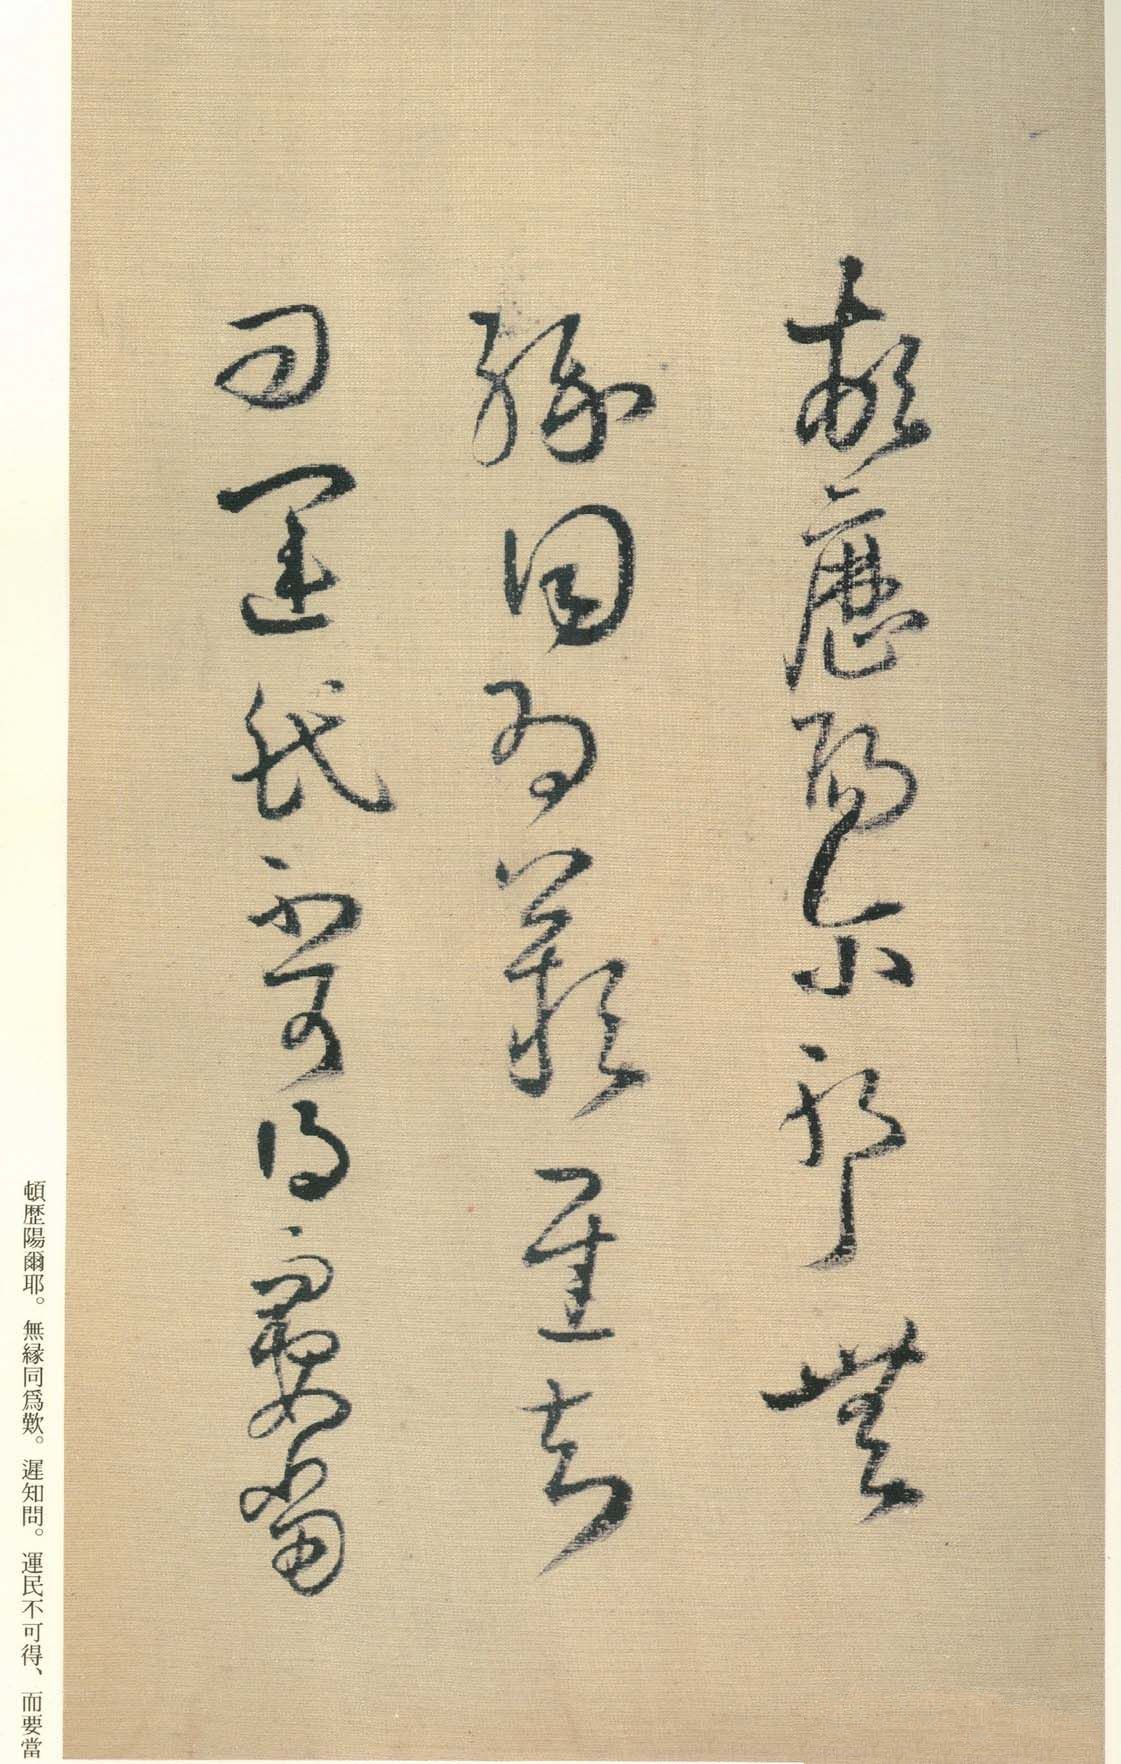 頓歷陽爾耶無
緣同為歎遲知
問運民不可得而要當
頓歴陽爾耶。無緣同爲歎。遲知問。運民不可得、而要當